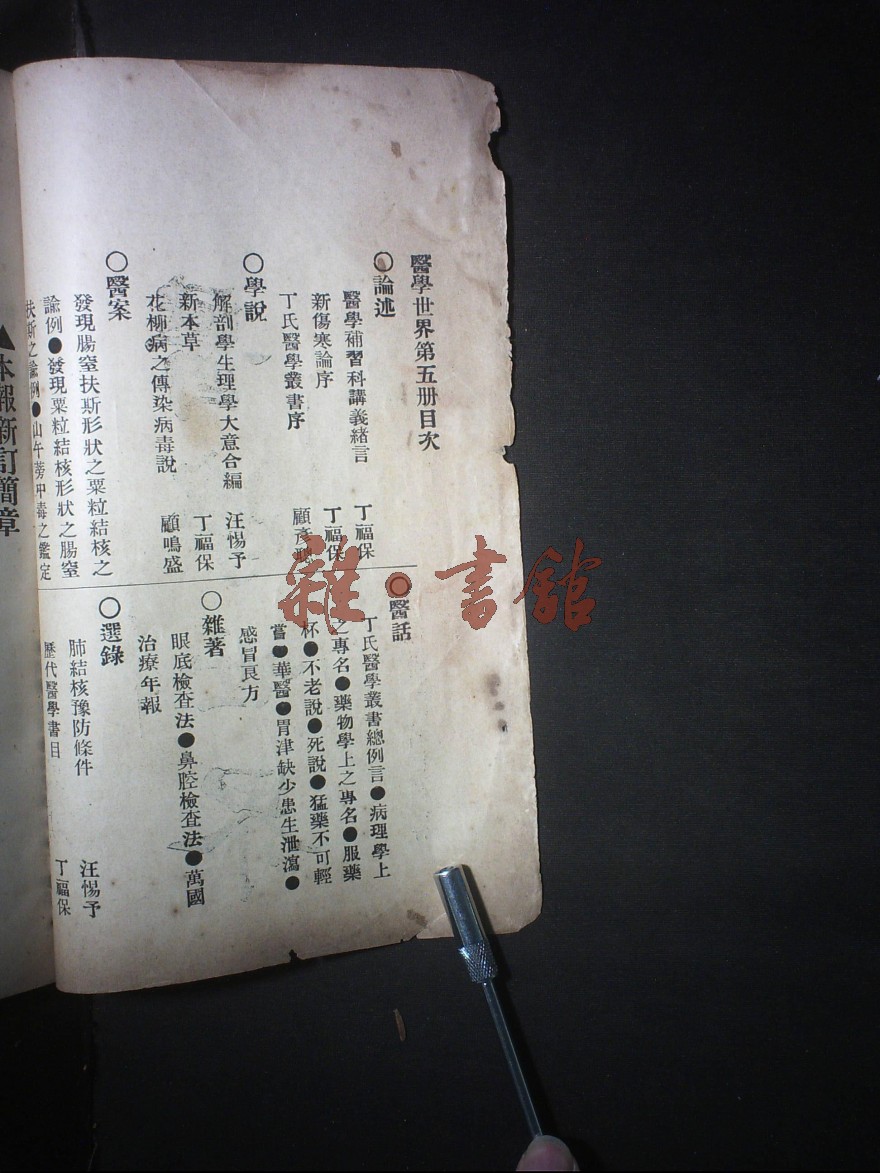 醫學世界第五册目次
○論述
醫學補習科講義緒言 丁福保
新傷寒論序 丁福保
丁氏醫學叢書序 顧彥
○學說
解剖學生理學大意合編 汪惕予
新本草 丁福保
花柳病之傳染病毒說 顧鳴盛
○醫案
發現腸窒扶斯形狀之粟粒結核之
諭例●發現粟粒結核形狀之腸窒
扶斯之諭例●山午蒡中毒之鑑定
○醫話
丁氏醫學叢書總例言●病理學上
之專名●藥物學上之專名●服藥
杯●不老說●死說●猛藥不可輕
嘗●華醫●胃津缺少患生泄瀉●
感冒良方
○雜著
眼底檢查法●鼻腔檢查法●萬國
治療年報
○選錄
肺結核豫防條件 汪惕予
歷代醫學書目 丁福保
▲本報新訂簡章
雜·書館